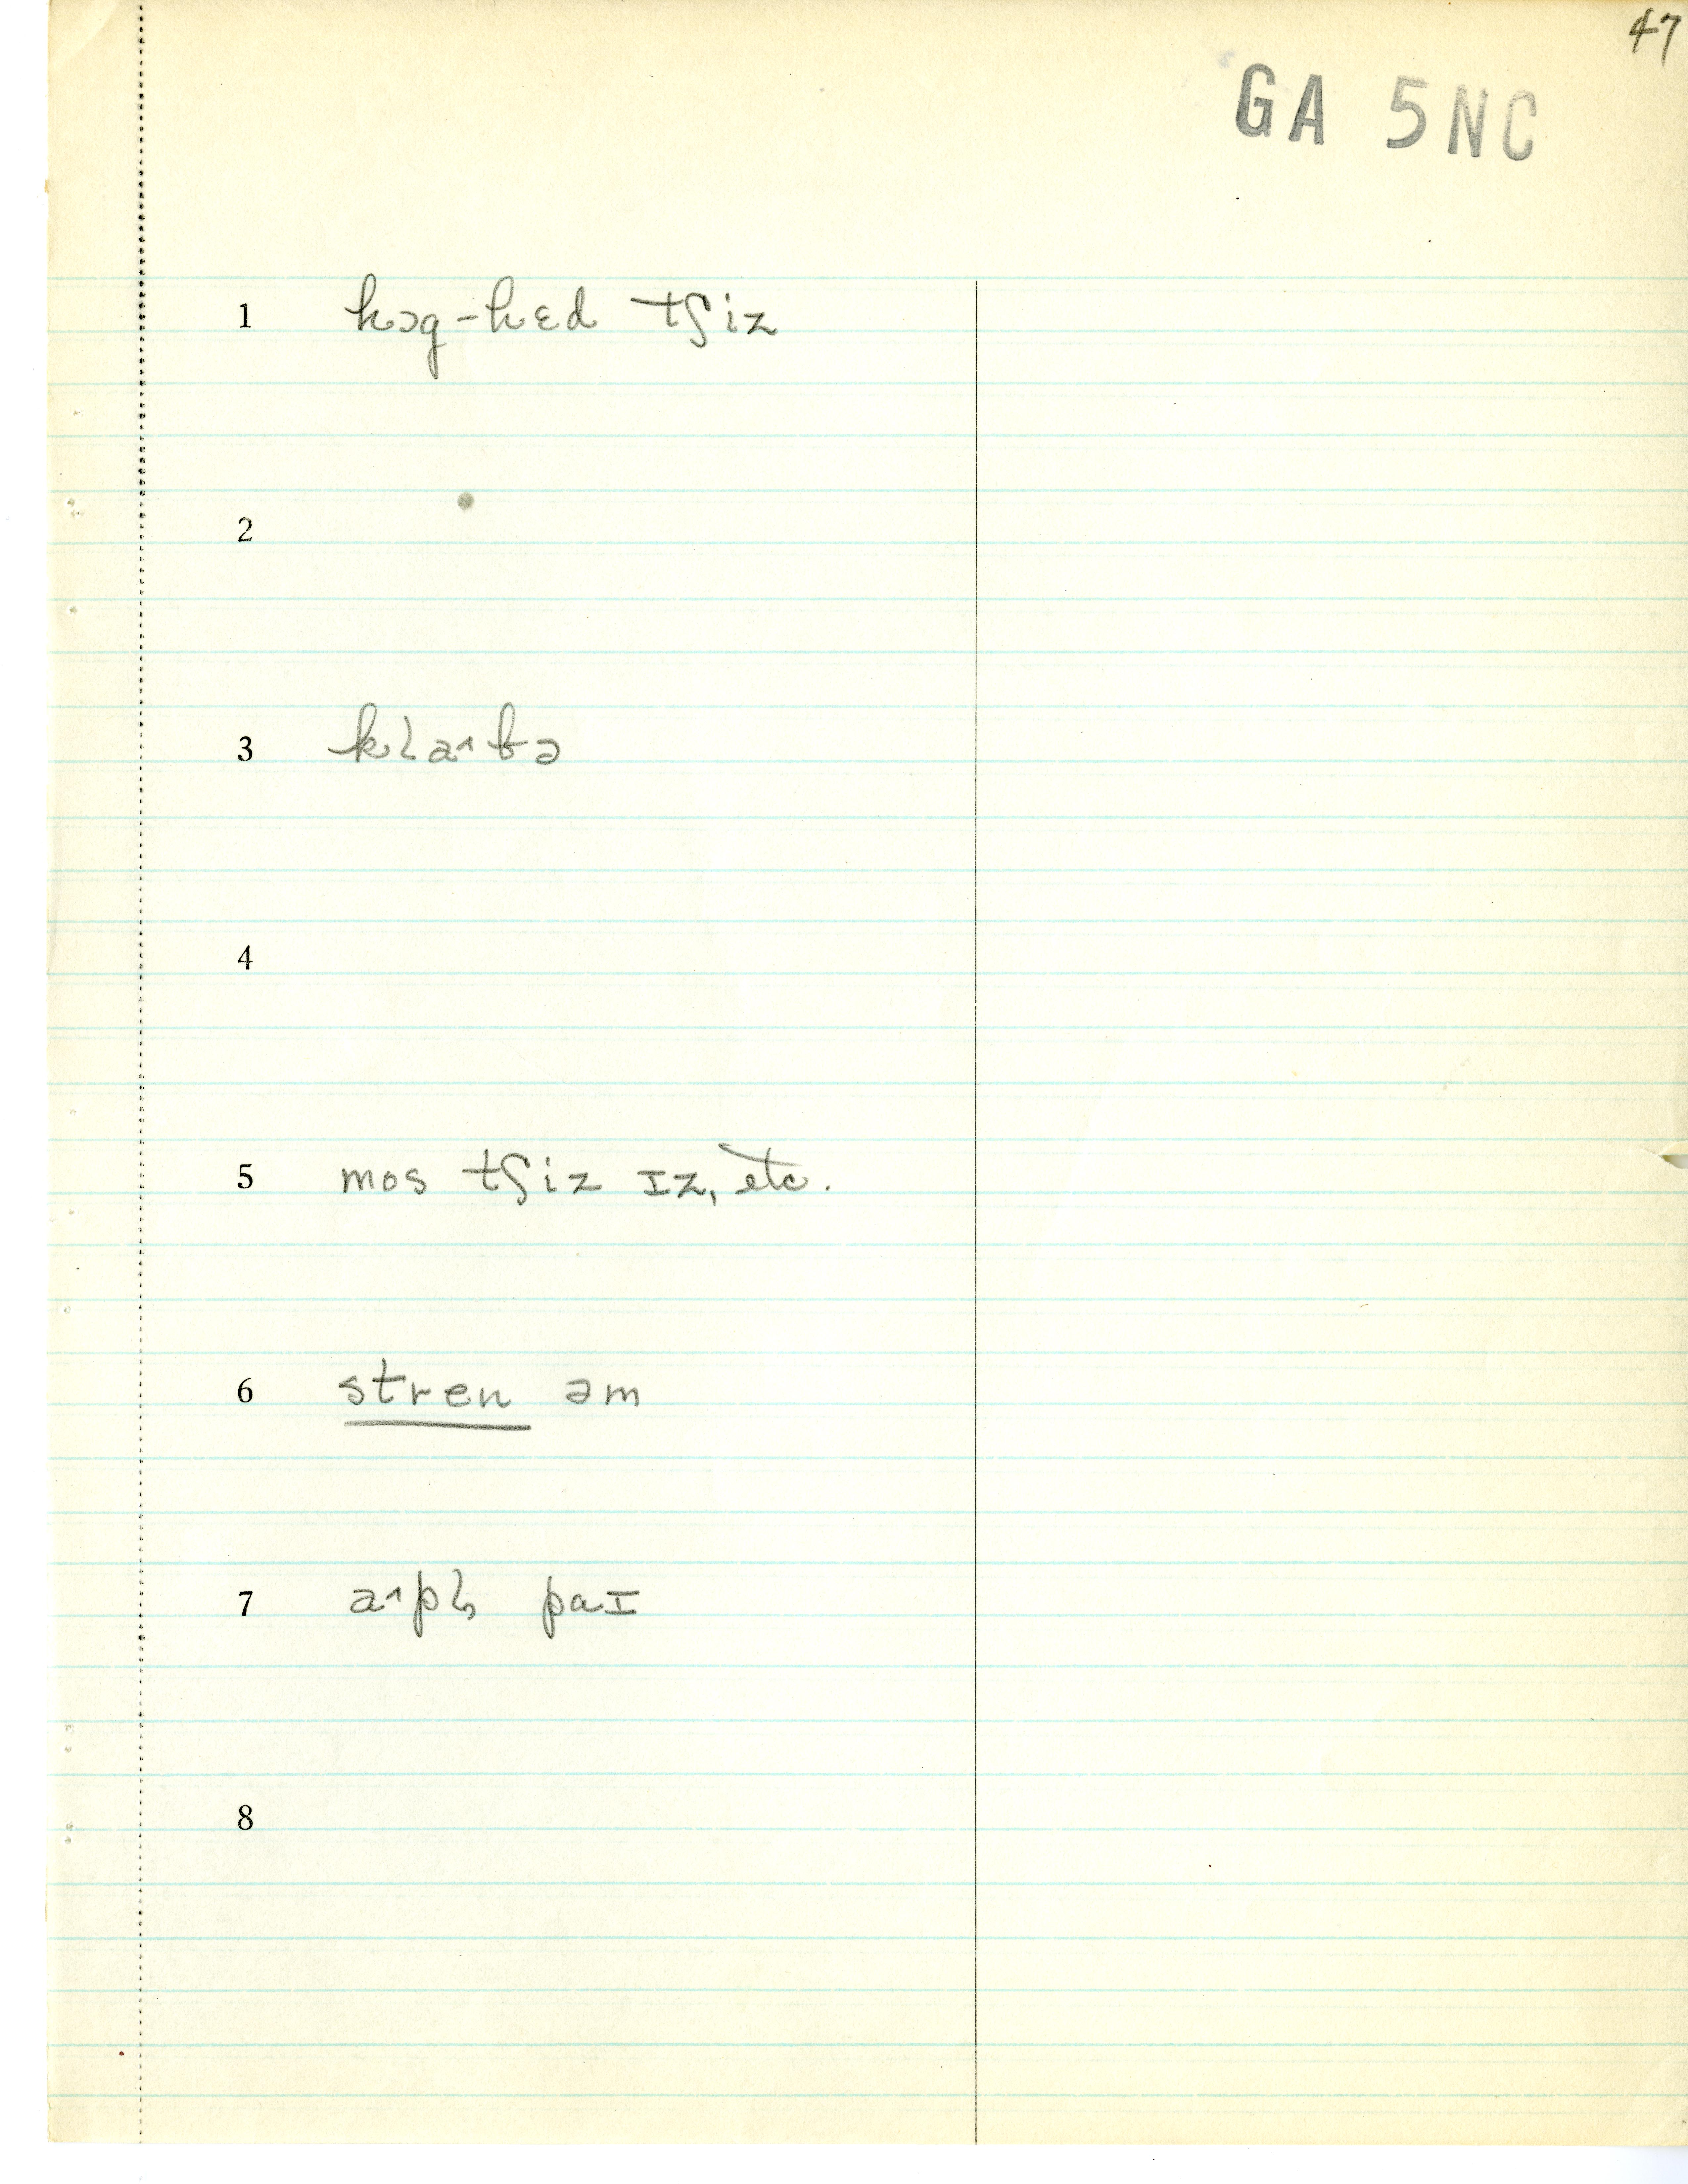 47
GA 5NC
1 hɔg-hɛd tʃiz
2
3 kla˄bə
4
5 mos tʃiz ɪz, etc.
6 stren əm
7 a˄pl̩ paɪ
8